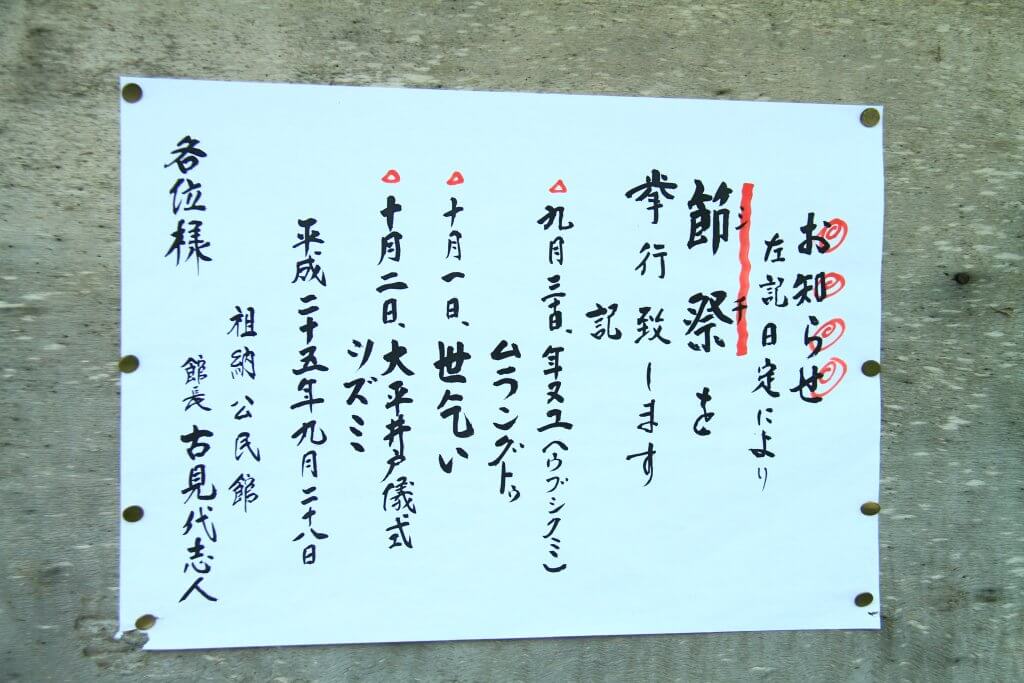 お知らせ
左記日定により
シチ
節祭を
挙行致します
記
九月三十日、年ヌユ(ウブシクミ)
ムラングトゥ
十月一日、世乞い
十月二日、大平井戸儀式
シズミ
平成二十五年九月二十八日
祖納公民館
館長 古見代志人
各位様